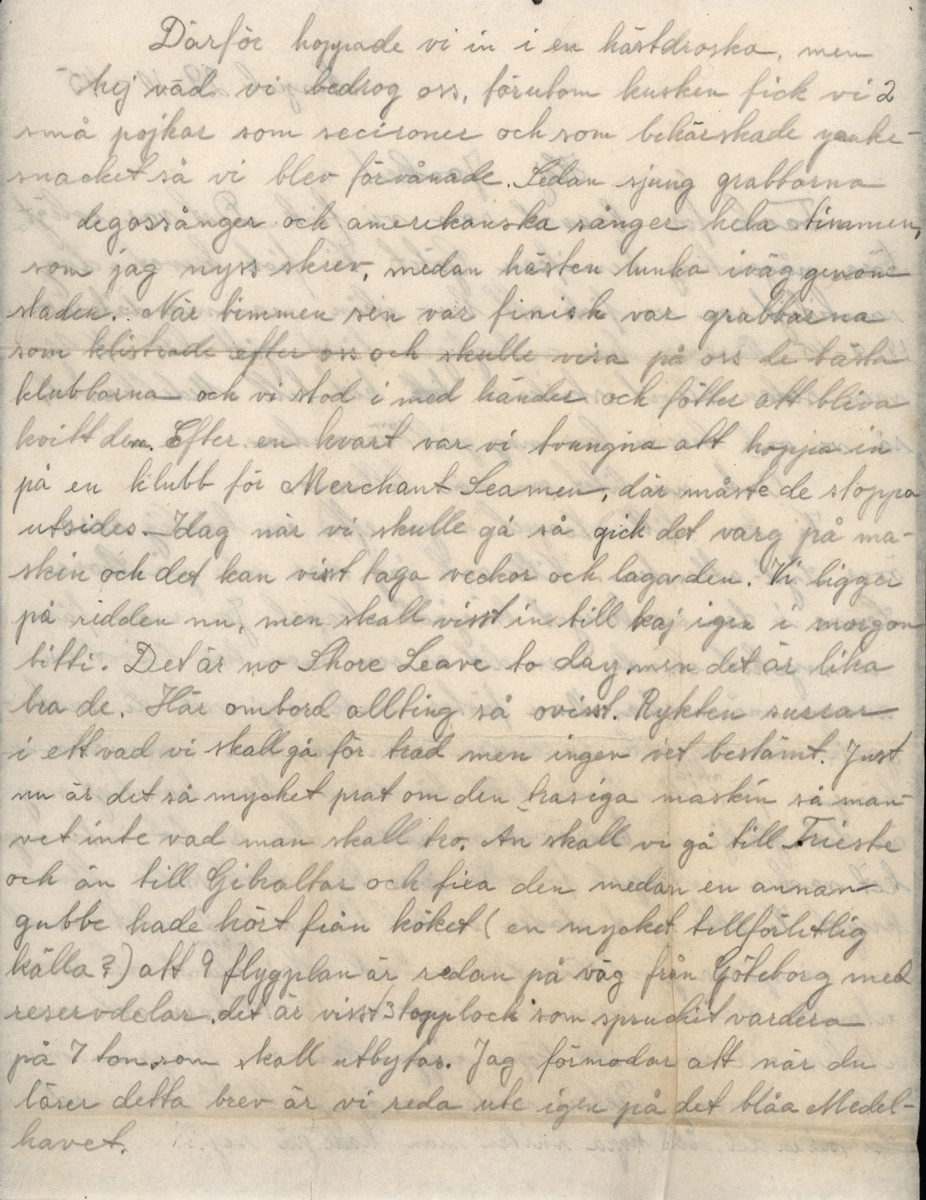 Därför hoppade vi in i en hästdroska, men
hej vad vi bedrog oss, förutom kusken fick vi 2
små pojkar som secironer och som behärskade yanke-
snacket så vi blev förvånade. Sedan sjung grabbarna
degossånger och amerikanska sånger hela timmen,
som jag nyss skrev, medan hästen lunka iväg genom
staden. När timmen sen var finish var grabbarna
som klistrade efter oss och skulle visa på oss de bästa
klubbarna och vi stod i med händer och fötter att bliva
kvitt dem. Efter en kvart var vi tvungna att hoppa in
på en klubb för Merchant Seamen, där måste de stoppa
utsides. Idag när vi skulle gå så gick det varg på ma-
skin och det kan visst taga veckor och laga den. Vi ligger
på redden nu, men skall visst in till kaj igen i morgon
bitti. Det är no Shore Leave to day men det är lika
bra de. Här ombord allting så ovisst. Rykten surrar
i ett vad vi skall gå för trad men ingen vet bestämt. Just
nu är det så mycket prat om den trasiga maskin så man
vet inte vad man skall tro. Än skall vi gå till Trieste
och än till Gibraltar och fira den medan en annan
gubbe hade hört från köket (en mycket tillförlitlig
källa?) att 9 flygplan är redan på väg från Göteborg med
reservdelar. det är visst 3 topplock som spruckit vardera
på 7 ton som skall utbytas. Jag förmodar att när du
läser detta brev är vi reda ute igen på det blåa Medel-
havet.